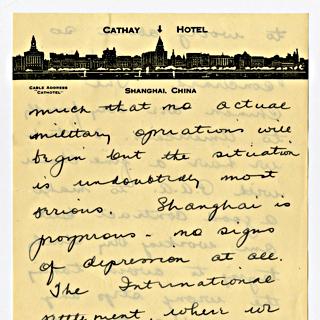 CATHAY HOTEL
CABLE ADDRESS
"CATHOTEL"
SHANGHAI, CHINA
much that no actual
military operations will
begin but the situation
is undoubtedly most
serious. Shanghai is
prosperous - no signs
of depression at all.
The International
settlement, where we